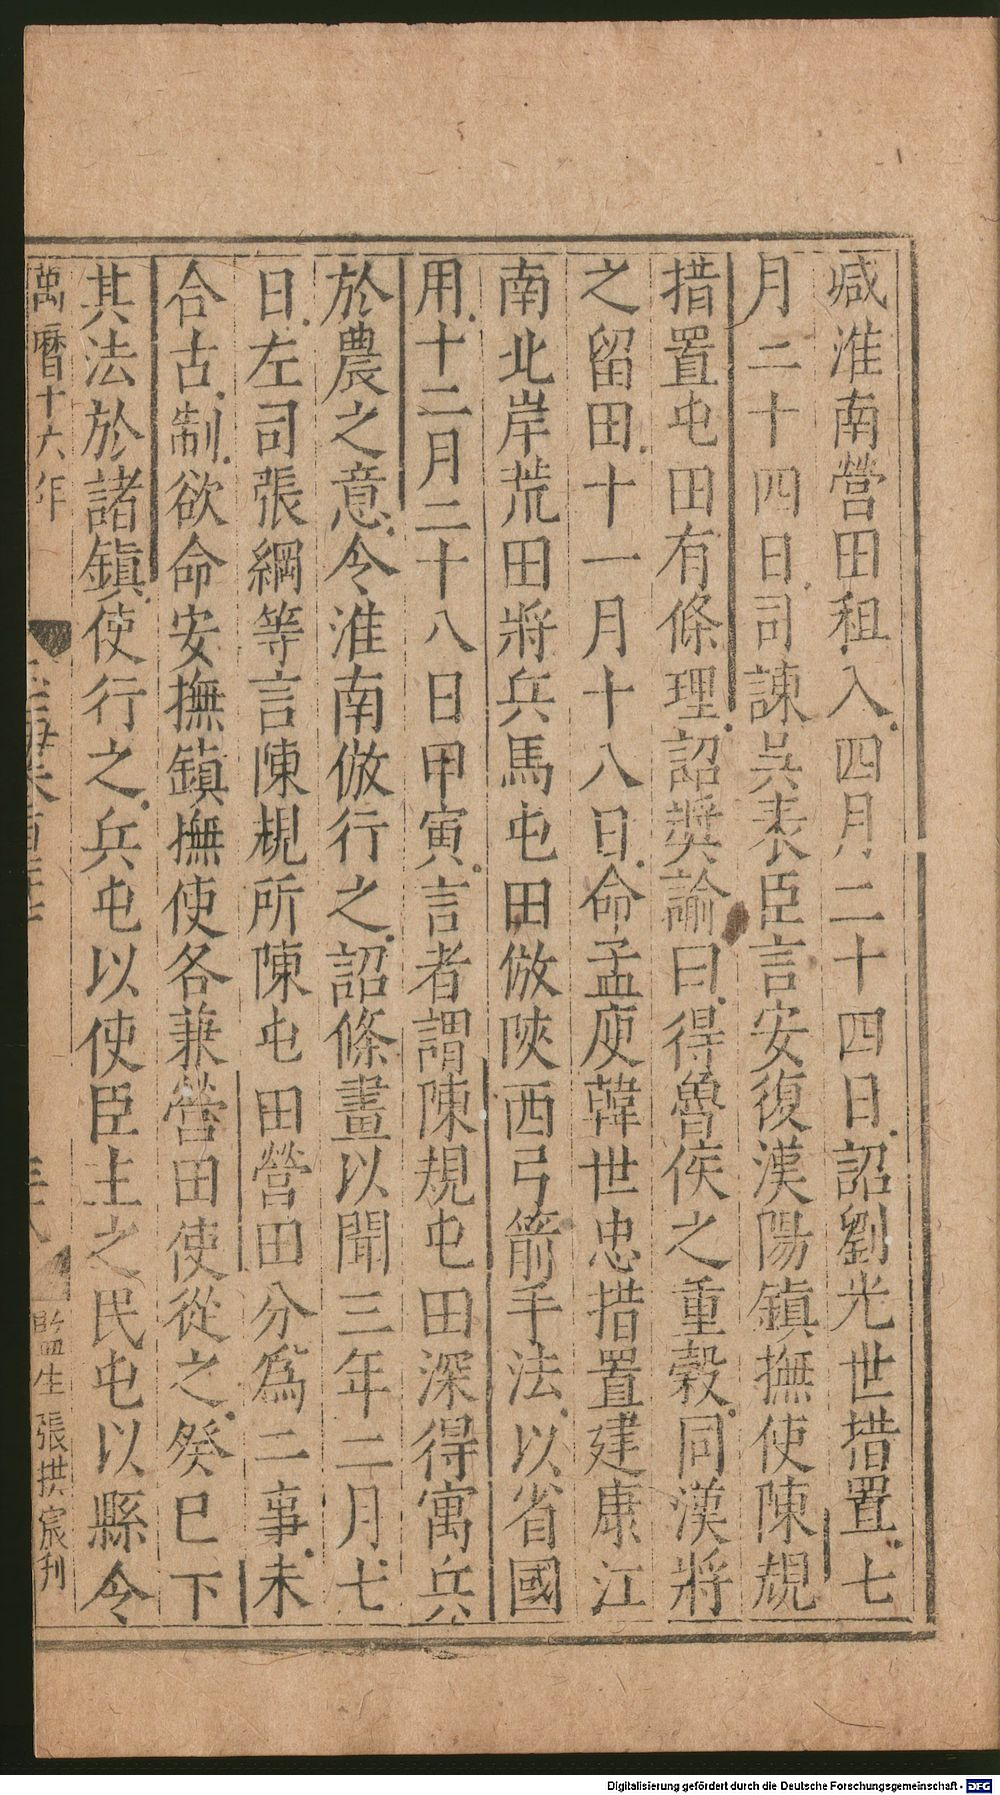 減淮南營田租入四月二十四日詔劉光世措置七
月二十四日司諫吳表臣言安復漢陽鎮撫使陳規
措置屯田有條理詔奬諭曰得魯侯之重穀同漢將
之留田十一月十八日命孟庾韓世忠措置建康江
南北岸荒田將兵馬屯田倣陝西弓箭手法以省國
用十二月二十八日甲寅言者謂陳規屯田深得寓兵
於農之意令淮南倣行之詔條畫以聞三年二月七
日左司張綱等言陳規所陳屯田營田分爲二事未
合古制欲命安撫鎮撫使各兼營田使從之癸巳下
其法於諸鎮使行之兵屯以使臣主之民屯以縣令
萬曆十六年
監生張拱宸刊
Digitalisierung gefördert durch die Deutsche Forschungsgemeinschaft - DFG